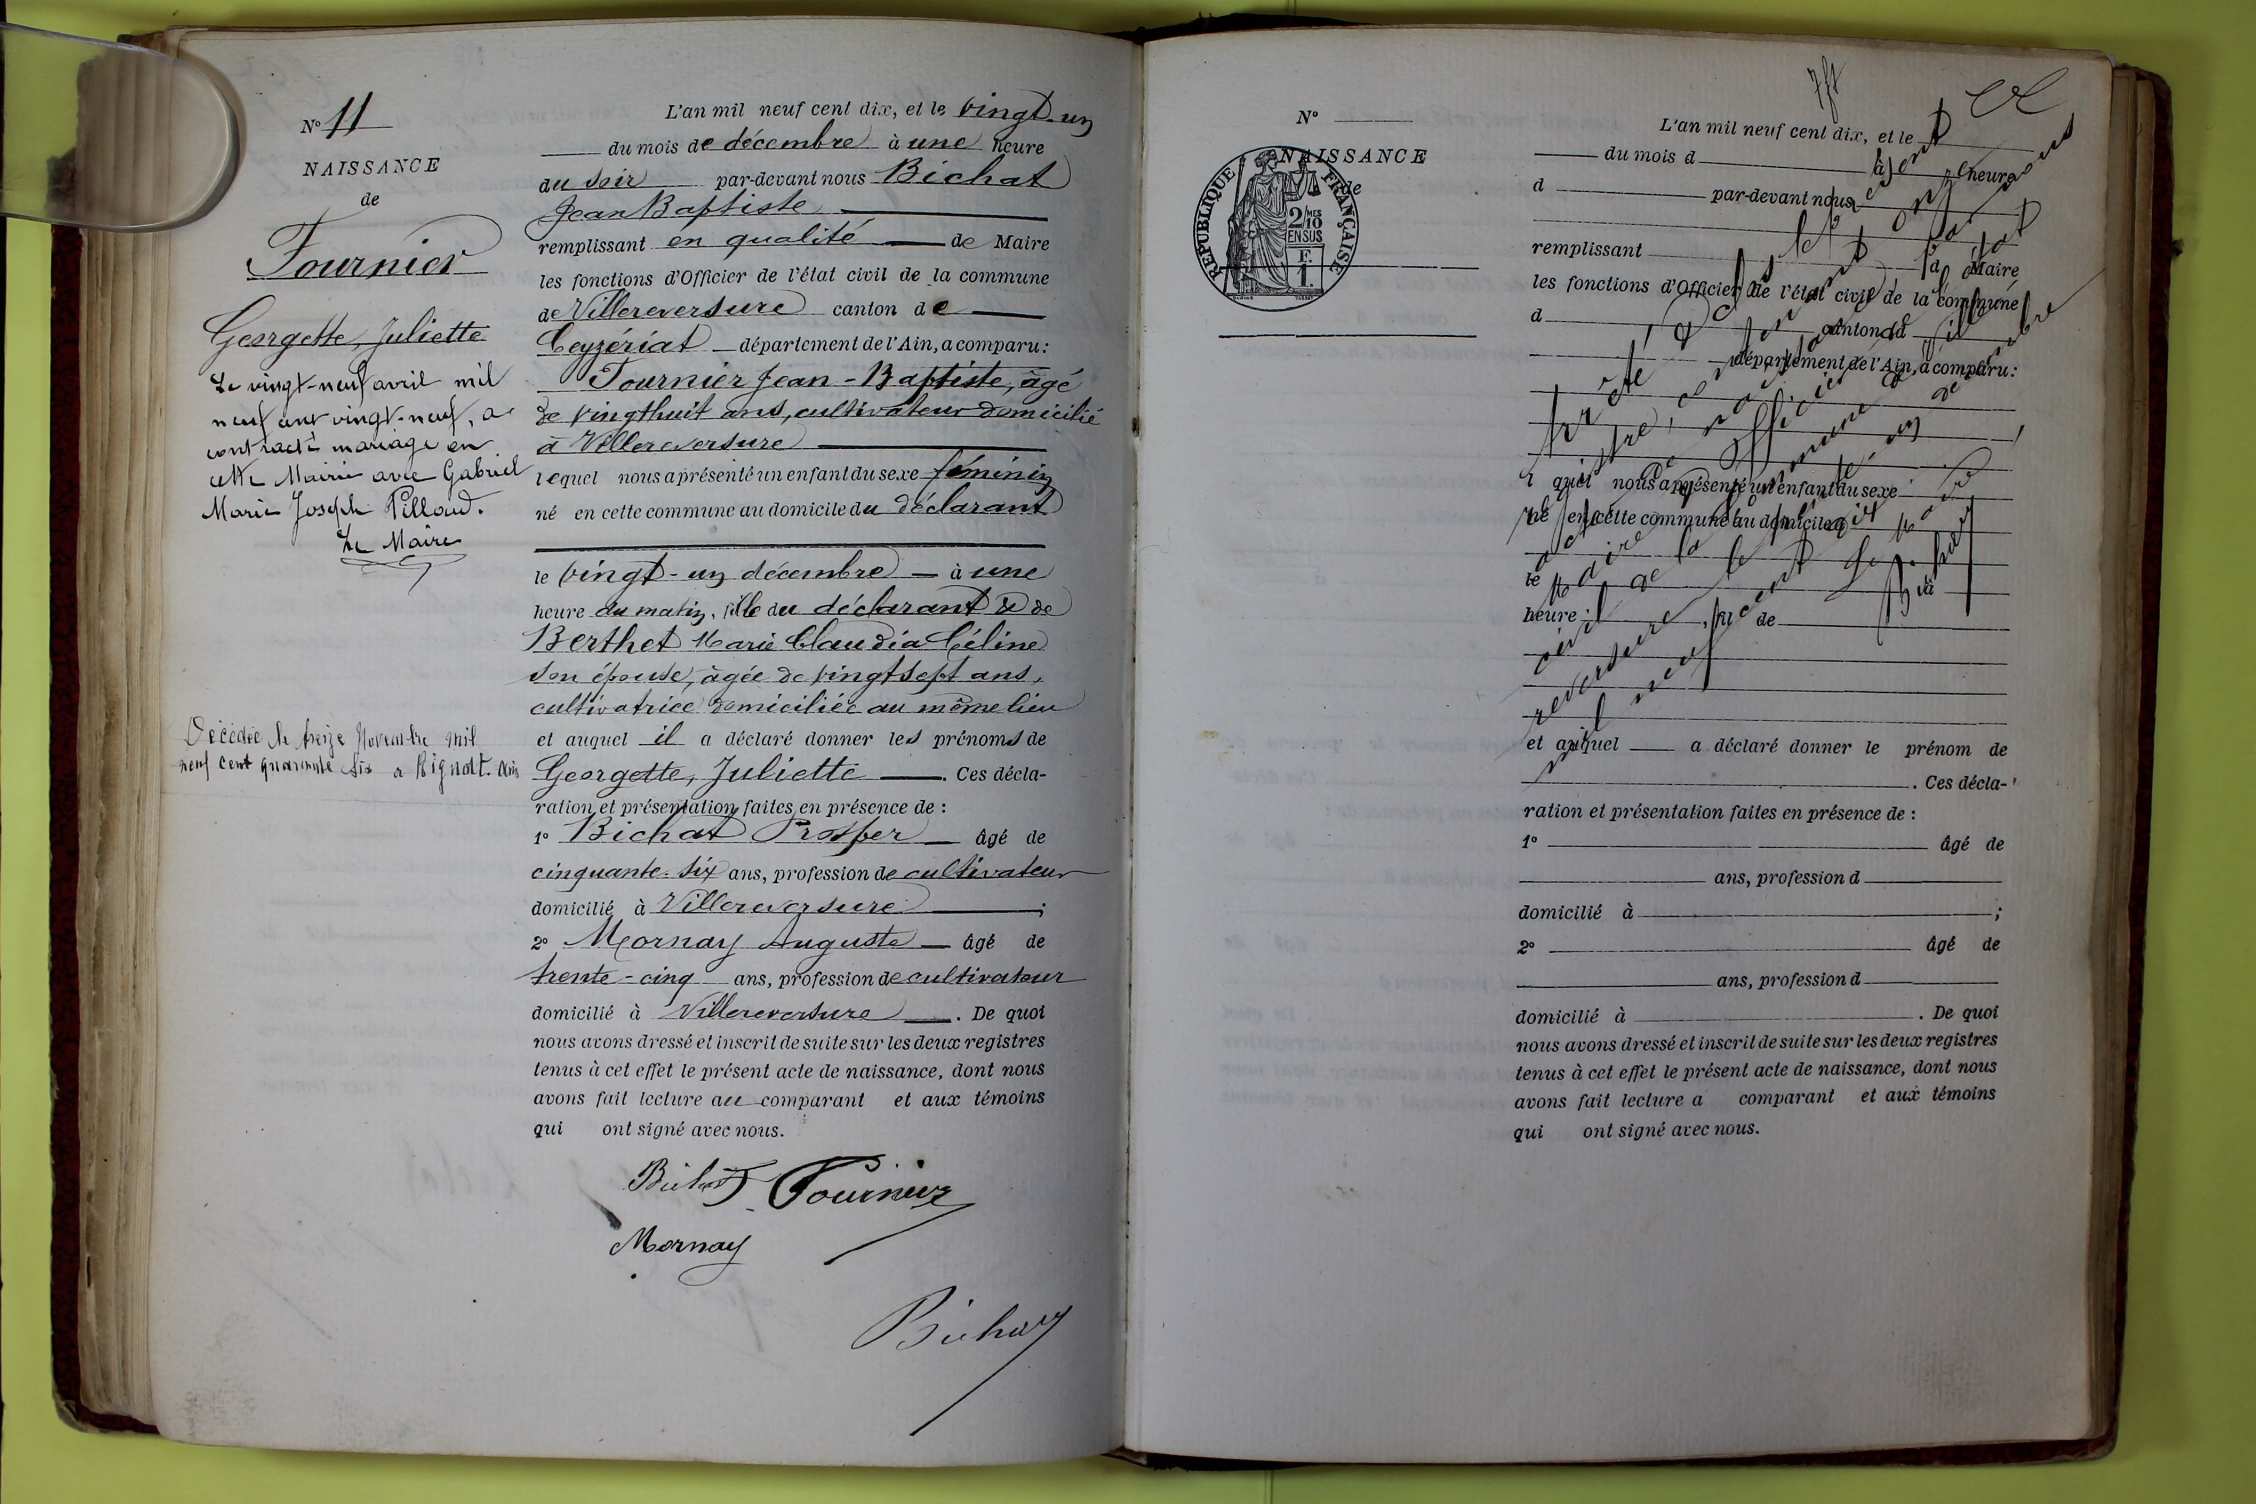 N° 11
NAISSANCE
de
Fournier
Georgette, Juliette
Le vingt-neuf avril mil
neuf cent vingt-neuf, a
contracté mariage en
cette Mairie avec Gabriel
Marie Joseph Pilloud.
Le Maire
Décédée le treize Novembre mil
neuf cent quarante six a Rignat. Ain
L'an mil neuf cent dix, et le vingt-un
du mois de décembre à une heure
du soir par-devant nous Bichat
Jean Baptiste
remplissant en qualité de Maire
les fonctions d'Officier de l'état civil de la commune
de Villereversure canton de
Ceyzériat département de l'Ain, a comparu:
Fournier Jean-Baptiste, âgé
de vingthuit ans, cultivateur domicilié
à Villereversure
lequel nous a présenté un enfant du sexe féminin
né en cette commune au domicile du déclarant
le vingt-un décembre à une
heure du matin, fille du déclarant & de
Berthet Marie Claudia Céline
son épouse, âgée de vingtsept ans,
cultivatrice domiciliée au même lieu
et auquel il a déclaré donner les prénoms de
Georgette, Juliette. Ces décla-
ration et présentation faites en présence de :
1° Bichat Prosper âgé de
cinquante-six ans, profession de cultivateur
domicilié à Villereversure ;
2° Mornay Auguste âgé de
trente-cinq ans, profession de cultivateur
domicilié à Villereversure. De quoi
nous avons dressé et inscrit de suite sur les deux registres
tenus à cet effet le présent acte de naissance, dont nous
avons fait lecture au comparant et aux témoins
qui ont signé avec nous.
Bichat Fournier
Mornay
Bichat
N°
NAISSANCE
de
REPUBLIQUE FRANÇAISE
2/10 MES
EN SUS
F.
1.
L'an mil neuf cent dix, et le
du mois d à heure
d par-devant nous
remplissant d Maire
les fonctions d'Officier de l'état civil de la commune
d canton d
département de l'Ain, a comparu:
l quel nous a présenté un enfant du sexe
né en cette commune au domicile d
le à
heure , fil de
et auquel a déclaré donner le prénom de
. Ces décla-
ration et présentation faites en présence de :
1° âgé de
ans, profession d
domicilié à ;
2° âgé de
ans, profession d
domicilié à . De quoi
nous avons dressé et inscrit de suite sur les deux registres
tenus à cet effet le présent acte de naissance, dont nous
avons fait lecture a comparant et aux témoins
qui ont signé avec nous.
Arrêté & clos le présent
registre, contenant onze
actes de naissance, par nous
Maire officier de l'état
civil de la commune de Ville
reversure le trente-un décembre
mil neuf cent dix
Le Maire
Bichat